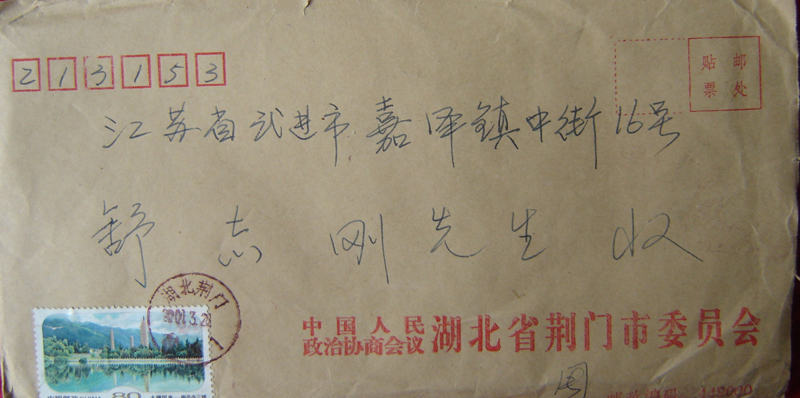 213153
贴邮
票处
江苏省武进市嘉泽镇中街16号
舒志刚先生 收
湖北荆门
2001.3.28
中国人民政治协商会议湖北省荆门市委员会
周
80